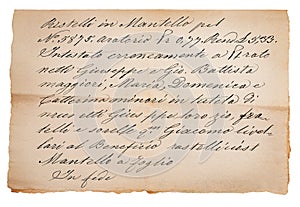 Restelli in Mantello pel
N.° 5875. aratorio Pr 0,77. Rend £ 3,53.
Intestato erroneamente a
netti Giuseppe e Gio. Battista
maggiori, Maria, Domenica e
Catterina minori in tutela di
Giuseppe loro zio, fra-
telli e sorelle qm Giacomo livel-
lari al Beneficio
Mantello a foglio
In fede